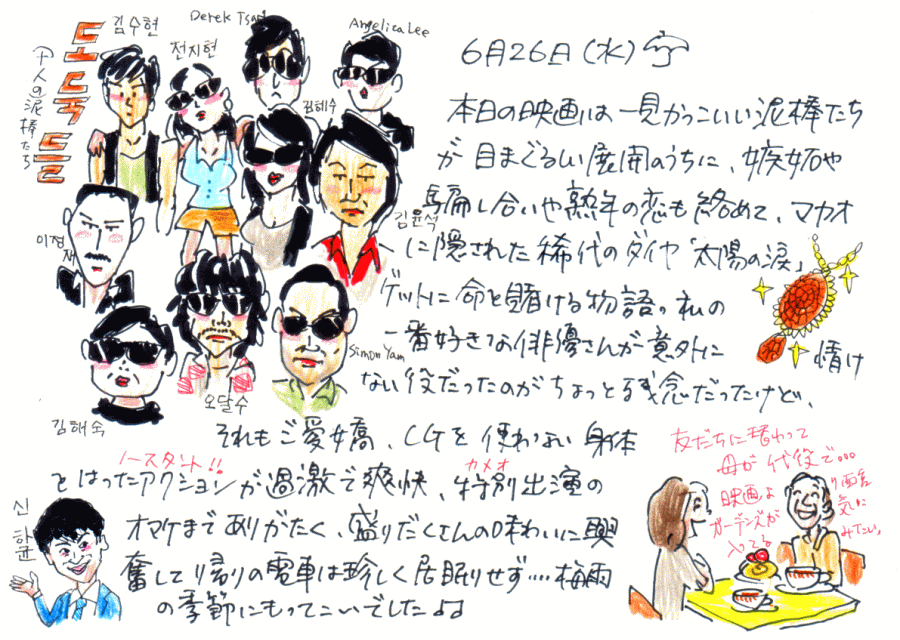 도둑들
十人の泥棒たち
김수현
전지현
Derek Tsan
Angelica Lee
김혜수
김윤석
이정재
김해숙
오달수
Simon Yam
6月26日(水)
本日の映画は一見かっこいい泥棒たち
が目まぐるしい展開のうちに、嫉妬や
騙し合いや熟年の恋も絡めて、マカオ
に隠された稀代のダイヤ「太陽の涙」
ゲットに命を賭ける物語。私の
一番好きな俳優さんが意外に情け
ない役だったのがちょっと残念だったけど、
それもご愛嬌、CGを使わない身体
ノースタント!!
カメオ
をはったアクションが過激で爽快、特別出演の
オマケまでありがたく、盛りだくさんの味わいに興
奮して帰りの電車は珍しく居眠りせず…梅雨
の季節にもってこいでしたよ
신하균
友だちに替わって
母が代役で…
映画よ
ガーデンズが
入ってる